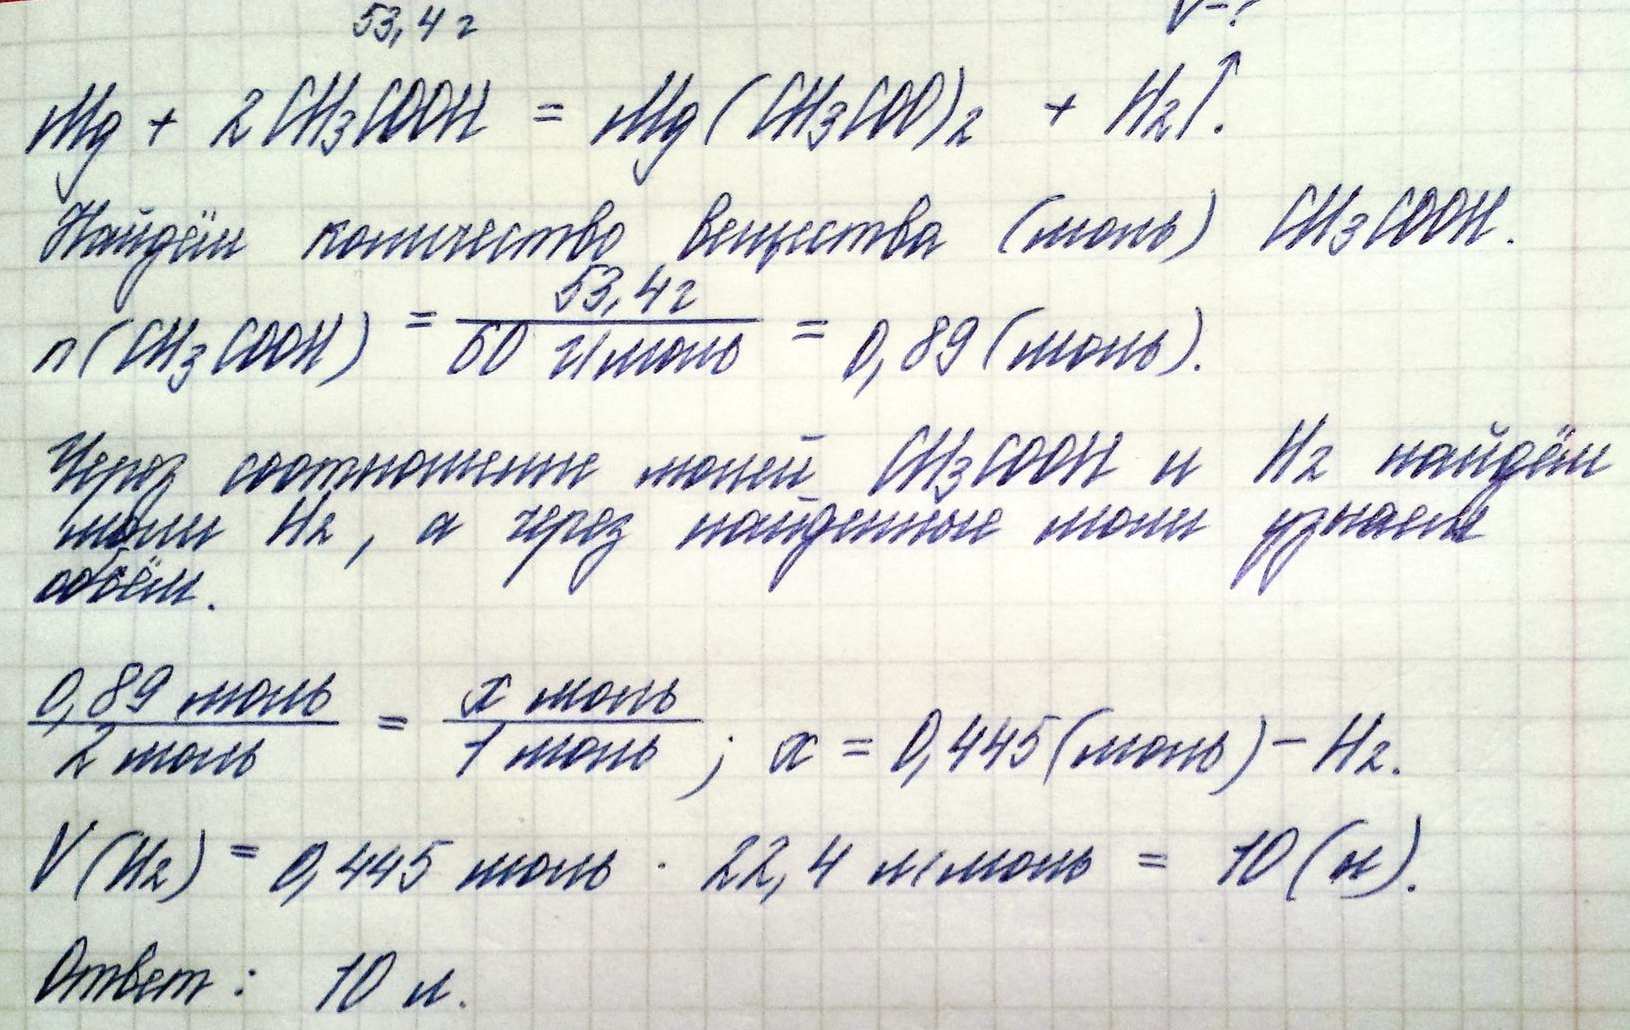 53,4 г V-?
Mg + 2 CH3COOH = Mg(CH3COO)2 + H2↑.
Найдём количество вещества (моль) CH3COOH.
n(CH3COOH) = 53,4 г / 60 г/моль = 0,89 (моль).
Через соотношение молей CH3COOH и H2 найдём
моли H2, а через найденные моли узнаем
объём.
0,89 моль / 2 моль = x моль / 1 моль ; x = 0,445 (моль) - H2.
V(H2) = 0,445 моль · 22,4 л/моль = 10 (л).
Ответ: 10 л.